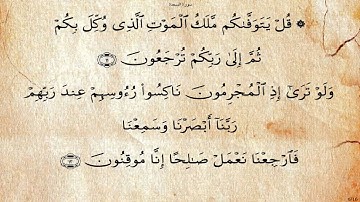 سورة السجدة
۞ قُلْ يَتَوَفَّىٰكُم مَّلَكُ ٱلْمَوْتِ ٱلَّذِى وُكِّلَ بِكُمْ
ثُمَّ إِلَىٰ رَبِّكُمْ تُرْجَعُونَ ۝١١
وَلَوْ تَرَىٰٓ إِذِ ٱلْمُجْرِمُونَ نَاكِسُوا۟ رُءُوسِهِمْ عِندَ رَبِّهِمْ
رَبَّنَآ أَبْصَرْنَا وَسَمِعْنَا
فَٱرْجِعْنَا نَعْمَلْ صَـٰلِحًا إِنَّا مُوقِنُونَ ۝١٢